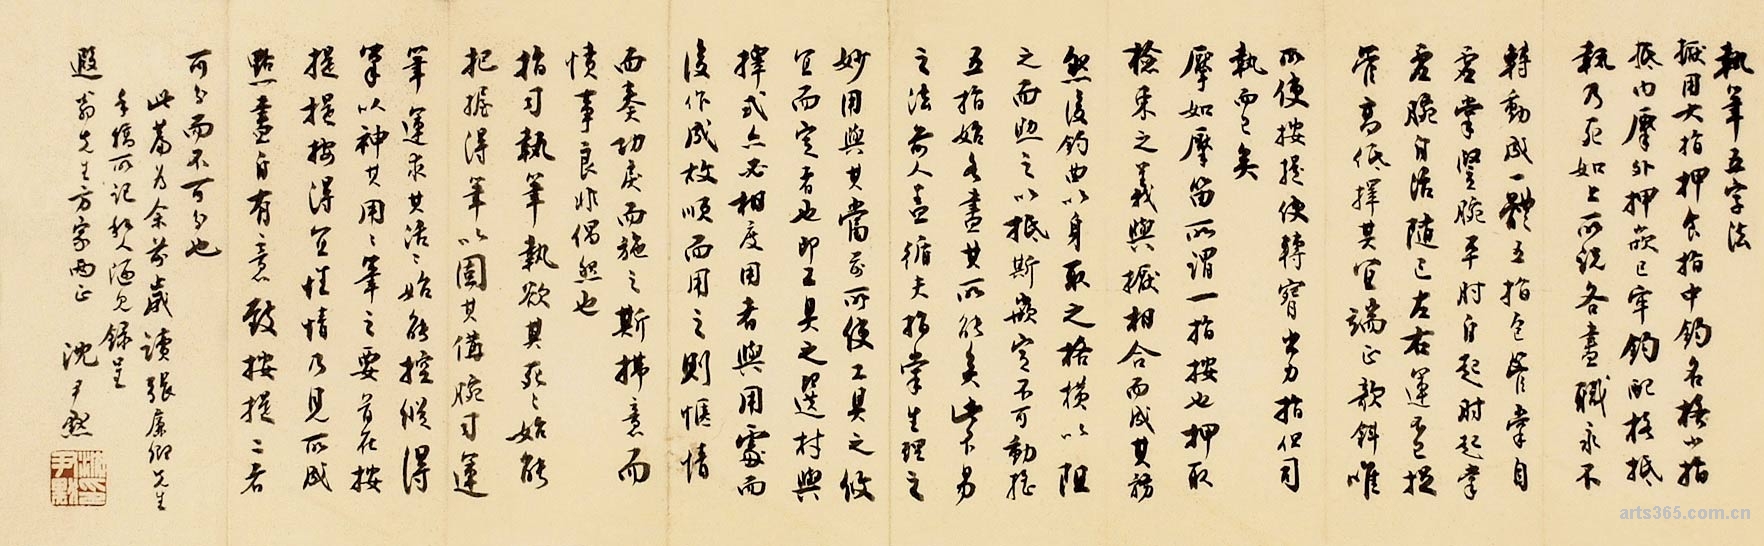 執筆五字法
擫用大指押食指中鈎名格小指
抵内擫外押嵌已牢鈎配格抵
執乃死如上所說各盡職永不
轉動成一體五指包管掌自
虛掌豎腕平肘自起肘起掌
虛腕自活隨己左右運
管高低擇其宜端正欹斜唯
所使按提使轉腕出力指但司
執而已矣
擫如擫笛所謂一指按也押取
檢束之義與擫相合而成其務
然後鈎曲以身取之格橫以阻
之而興之以抵斯嵌定不可動搖
五指始各盡其所能矣此不易
之法前人蓋循夫指掌生理之
妙用與其當前所使工具之攸
宜而定者也即工具之選材與
擇式亦必相度用者與用處而
後作成故順而用之則愜情
而奏功戾而施之斯拂意而
憤事良非偶然也
指司執筆執欲其死死始能
把握得筆以固其溝腕司運
筆運求其活活始能控縱得
筆以神其用用筆之要首在按
提提按得宜性情乃見所成
點畫自有意致按提二者
可分而不可分也
此篇為余前歲讀張廉卿先生
手稿所記 錄呈
遐翁先生方家兩正
沈尹默
沈尹默
arts365.com.cn